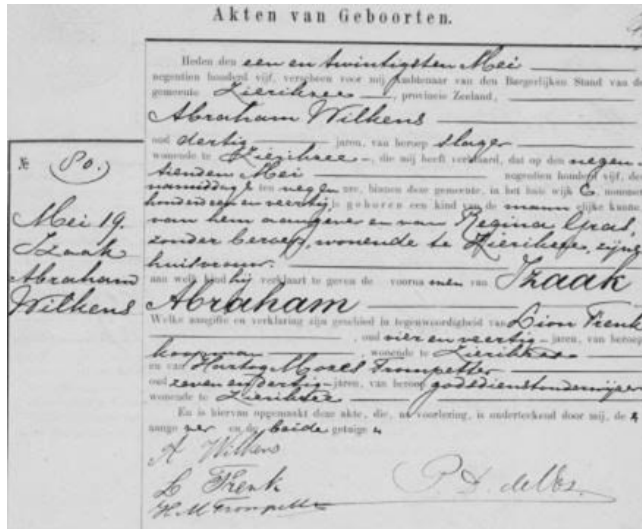 Akten van Geboorten.
Heden den een en twintigsten Mei
negentien honderd vijf, verscheen voor mij Ambtenaar van den Burgerlijken Stand van de
gemeente Zierikzee, provincie Zeeland,
Abraham Wilkens
oud dertig jaren, van beroep slager
wonende te Zierikzee, die mij heeft verklaard, dat op den negen-
tienden Mei negentien honderd vijf, des
namiddags ten negen ure, binnen deze gemeente, in het huis wijk C. nommer
honderd een en veertig, is geboren een kind van de mannelijke kunne,
van hem aangever en van Regina Gras,
zonder beroep, wonende te Zierikzee, zijne
huisvrouw.
aan welk kind hij verklaart te geven de voornamen van Izaak
Abraham
Welke aangifte en verklaring zijn geschied in tegenwoordigheid van Lion Frenk
, oud vier en veertig jaren, van beroep
koopman, wonende te Zierikzee
en van Hartog Mozes Trompetter
oud zeven en dertig jaren, van beroep godsdienstonderwijzer
wonende te Zierikzee
En is hiervan opgemaakt deze akte, die, na voorlezing, is onderteekend door mij, de
aangever en de beide getuigen
A Wilkens
L Frenk
H. M Trompetter
P. D. de Vos.
№ 80.
Mei 19.
Izaak
Abraham
Wilkens